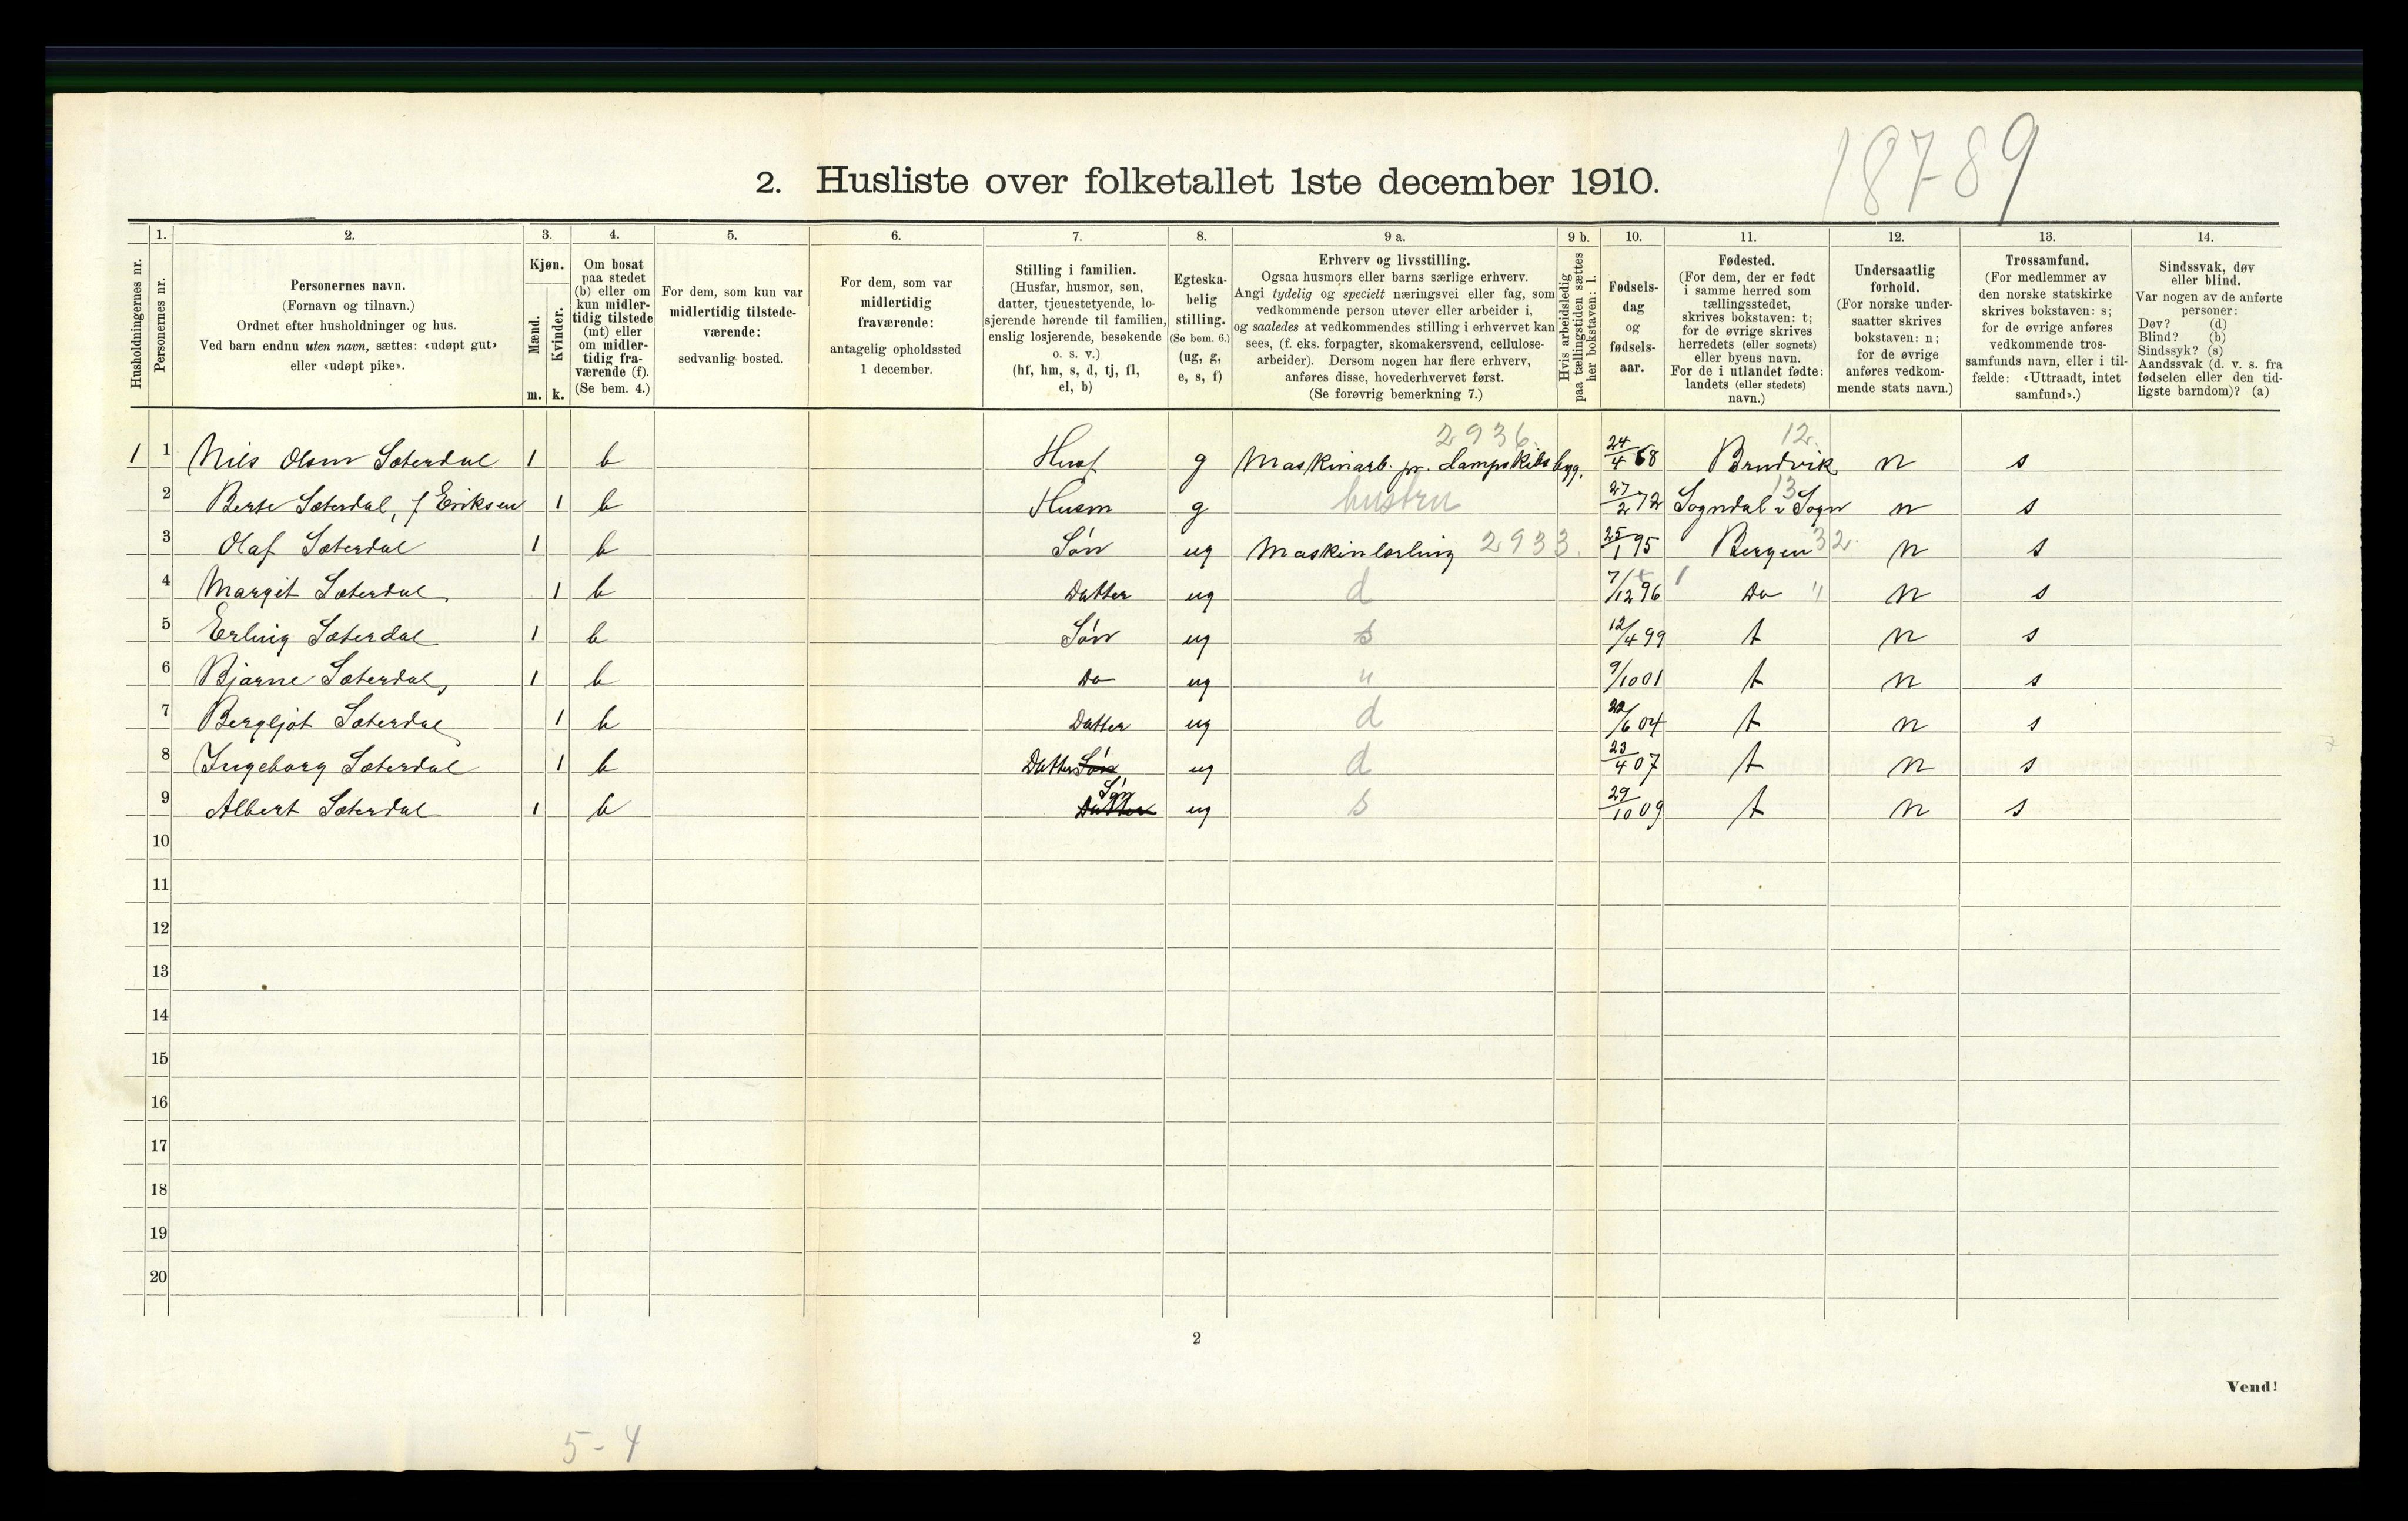 18789
2. Husliste over folketallet 1ste december 1910.
Husholdningernes nr.
1. Personernes nr.
2. Personernes navn.
(Fornavn og tilnavn.)
Ordnet efter husholdninger og hus.
Ved barn endnu uten navn, sættes: «udøpt gut»
eller «udøpt pike».
3. Kjøn.
Mænd. m.
Kvinder. k.
4. Om bosat
paa stedet
(b) eller om
kun midler-
tidig tilstede
(mt) eller
om midler-
tidig fra-
værende (f).
(Se bem. 4.)
5. For dem, som kun var
midlertidig tilstede-
værende:
sedvanlig bosted.
6. For dem, som var
midlertidig
fraværende:
antagelig opholdssted
1 december.
7. Stilling i familien.
(Husfar, husmor, søn,
datter, tjenestetyende, lo-
sjerende hørende til familien,
enslig losjerende, besøkende
o. s. v.)
(hf, hm, s, d, tj, fl,
el, b)
8. Egteska-
belig
stilling.
(Se bem. 6.)
(ug, g,
e, s, f)
9 a. Erhverv og livsstilling.
Ogsaa husmors eller barns særlige erhverv.
Angi tydelig og specielt næringsvei eller fag, som
vedkommende person utøver eller arbeider i,
og saaledes at vedkommendes stilling i erhvervet kan
sees, (f. eks. forpagter, skomakersvend, cellulose-
arbeider). Dersom nogen har flere erhverv,
anføres disse, hovederhvervet først.
(Se forøvrig bemerkning 7.)
9 b. Hvis arbeidsledig
paa tællingstiden sættes
her bokstaven: l.
10. Fødsels-
dag
og
fødsels-
aar.
11. Fødested.
(For dem, der er født
i samme herred som
tællingsstedet,
skrives bokstaven: t;
for de øvrige skrives
herredets (eller sognets)
eller byens navn.
For de i utlandet fødte:
landets (eller stedets)
navn.)
12. Undersaatlig
forhold.
(For norske under-
saatter skrives
bokstaven: n;
for de øvrige
anføres vedkom-
mende stats navn.)
13. Trossamfund.
(For medlemmer av
den norske statskirke
skrives bokstaven: s;
for de øvrige anføres
vedkommende tros-
samfunds navn, eller i til-
fælde: «Uttraadt, intet
samfund».)
14. Sindssvak, døv
eller blind.
Var nogen av de anførte
personer:
Døv? (d)
Blind? (b)
Sindssyk? (s)
Aandssvak (d. v. s. fra
fødselen eller den tid-
ligste barndom)? (a)
2936 12.
1 1 Nils Olsen Sæterdal 1 b Husf g Maskinarb. pr. dampskibsbyg. 24/4 68 Brudvik n s
2 Berte Sæterdal, f Eriksen 1 b Husm g hustru 27/2 72 Sogndal i Sogn 13 n s
3 Olaf Sæterdal 1 b Søn ug Maskinlærling 2933. 25/1 95 Bergen 32. n s
4 Margit Sæterdal 1 b Datter ug d 7/12 96 Do " n s
5 Erling Sæterdal 1 b Søn ug s 12/4 99 t n s
6 Bjarne Sæterdal, 1 b Do ug " 9/10 01 t n s
7 Bergljot Sæterdal 1 b Datter ug d 22/6 04 t n s
8 Ingeborg Sæterdal 1 b Datter Søn ug d 23/4 07 t n s
9 Albert Sæterdal 1 b Søn Datter ug s 29/10 09 t n s
10
11
12
13
14
15
16
17
18
19
20
2
Vend!
5-4